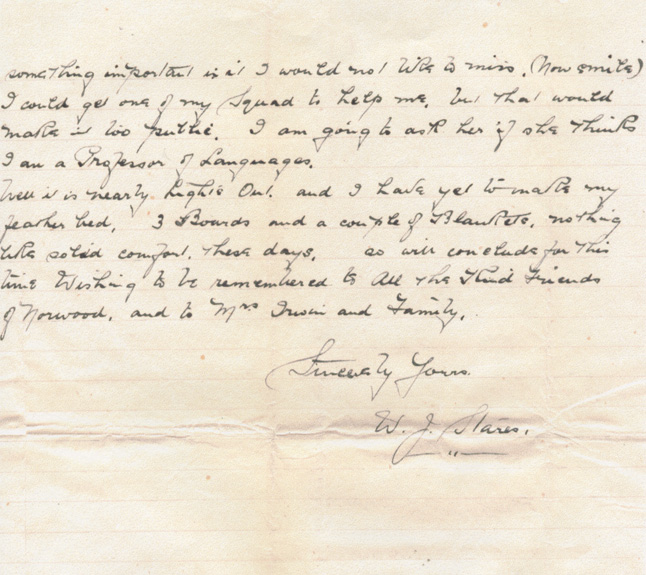 something important is it I would not like to miss. (Now smile)
I could get one of my Squad to help me. but that would
make it too public. I am going to ask her if she thinks
I am a Professor of Languages.
Well it is nearly Lights Out. and I have yet to make my
feather bed, 3 Boards and a couple of Blankets, nothing
like solid comfort, these days, so will conclude for this
time Wishing to be remembered to All the Kind Friends
of Norwood, and to Mrs Irwin and Family.
Sincerely Yours.
W. J. Stares.